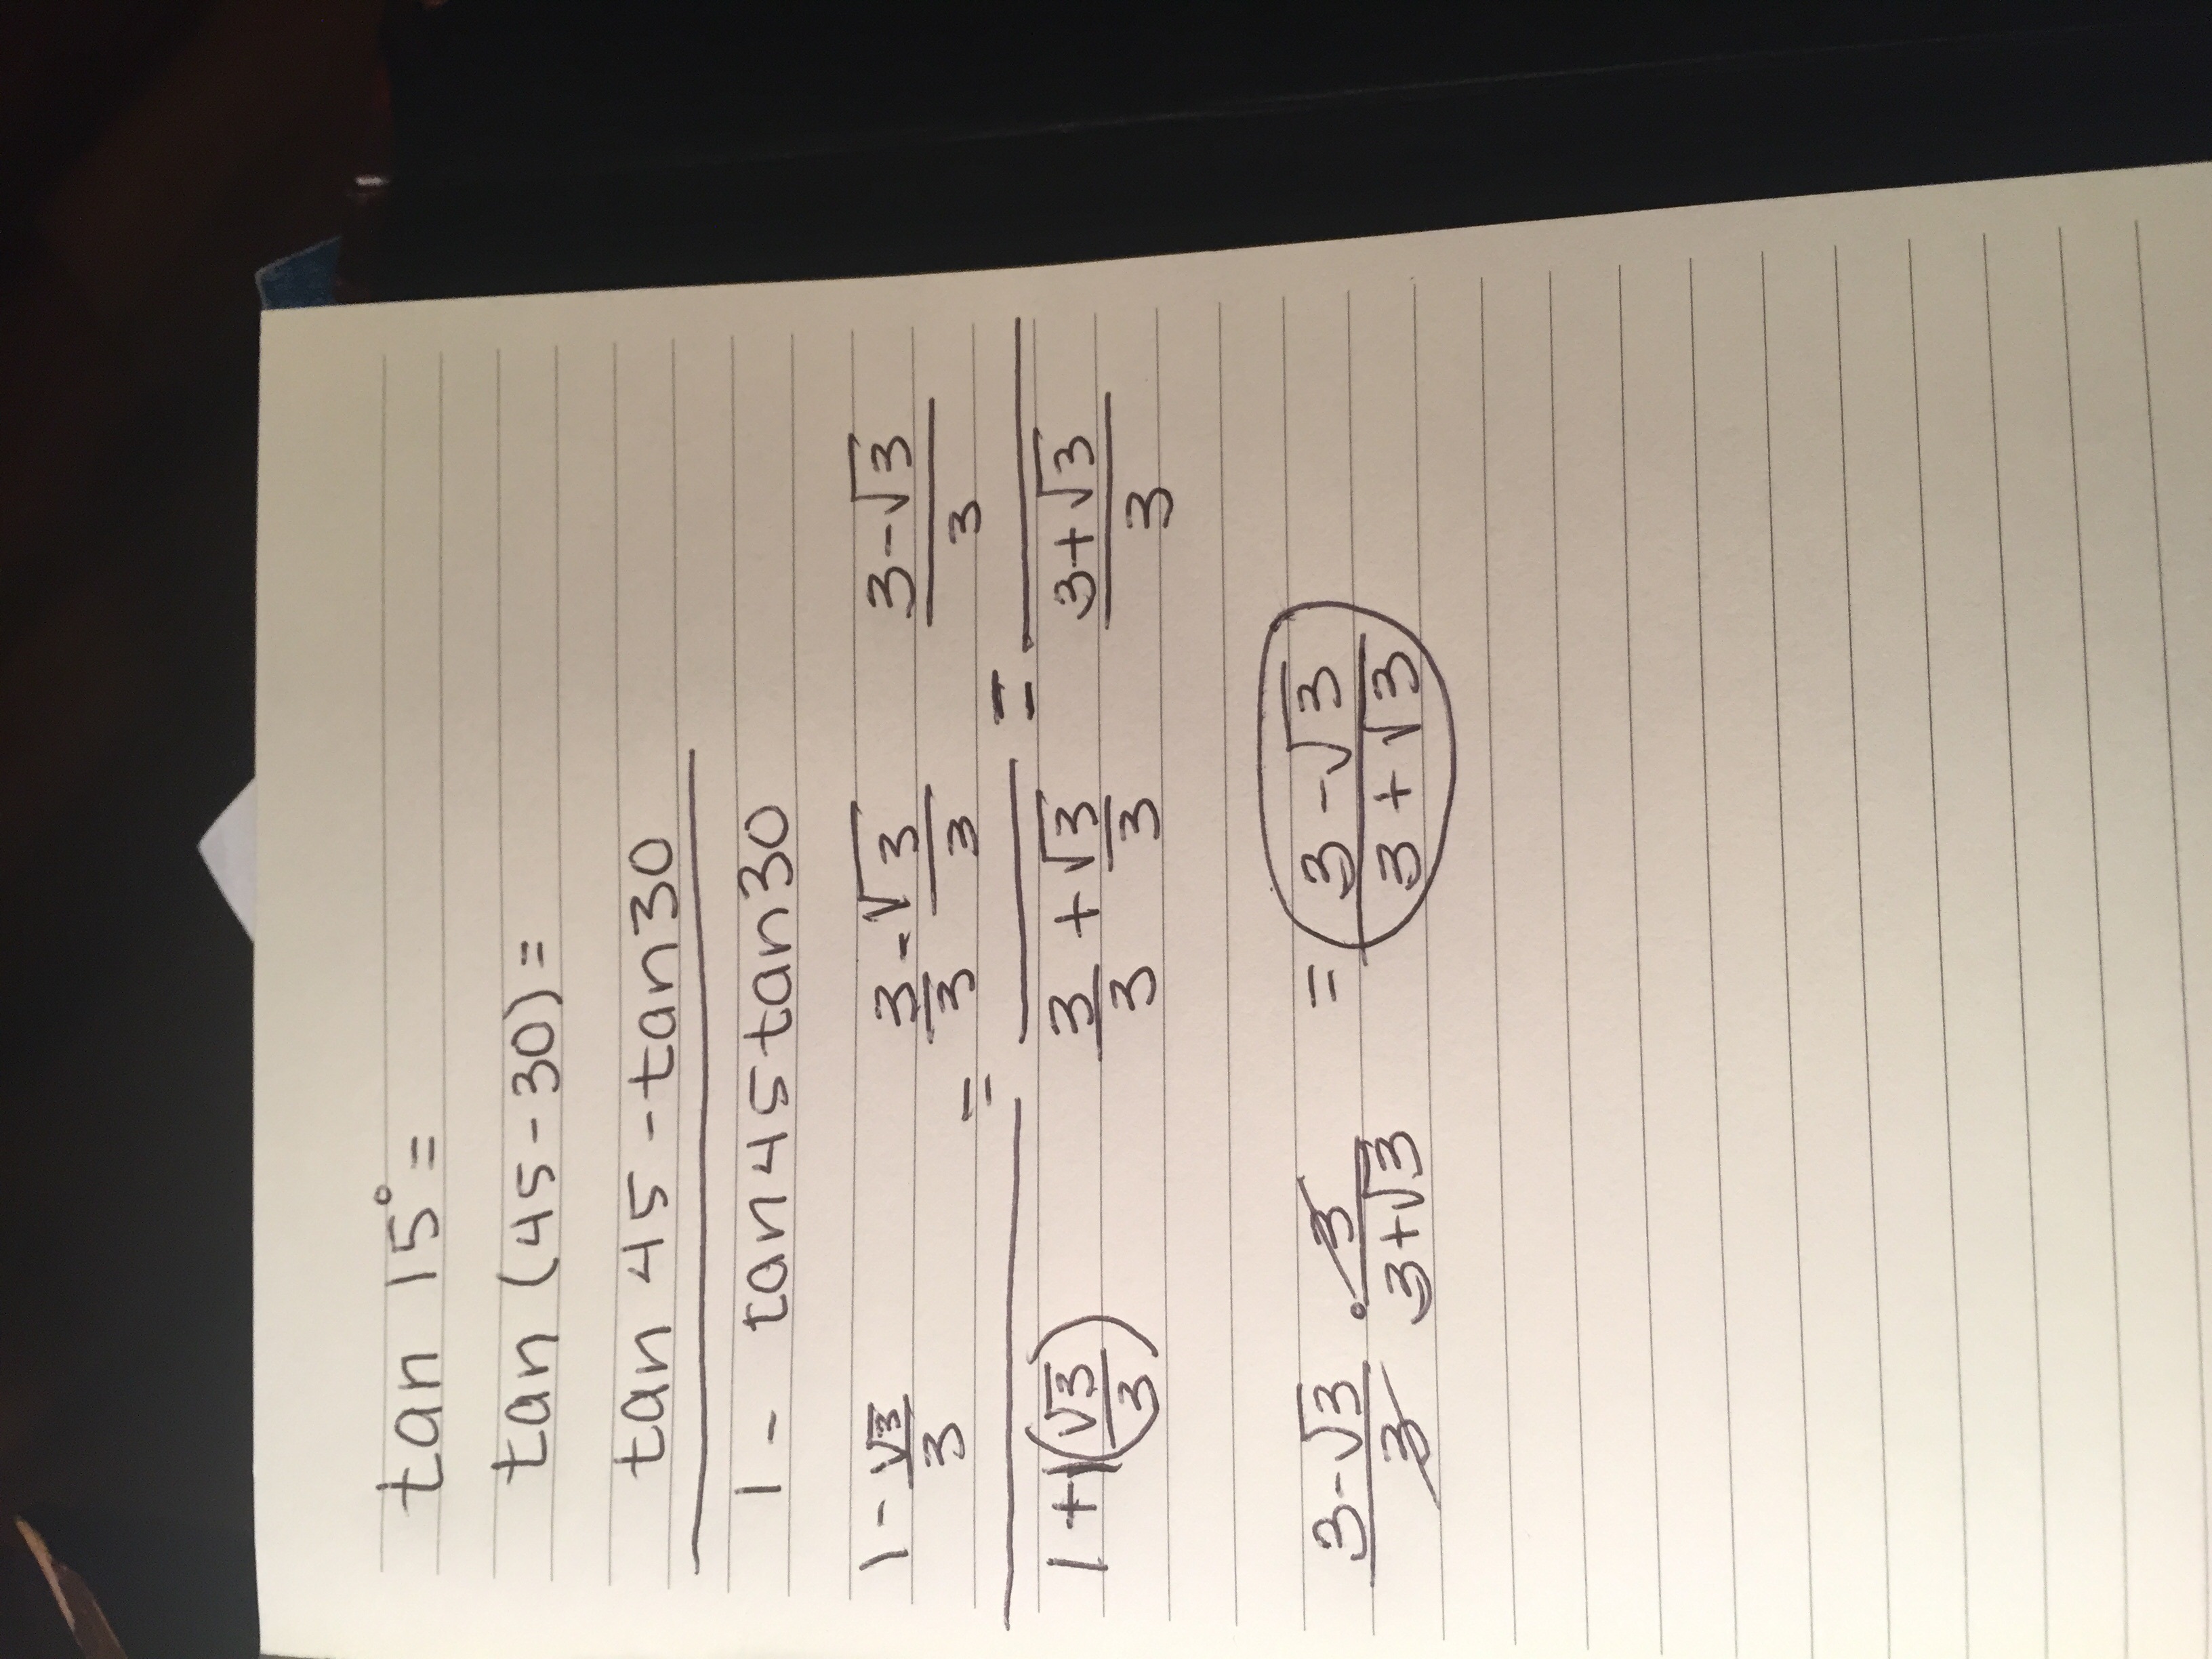 tan 15° =
tan (45-30) =
tan 45 - tan30
1 - tan45tan30
1 - √3/3 = 3/3 - √3/3 = 3-√3/3
1 + 1(√3/3) 3/3 + √3/3 3+√3/3
3-√3/3 · 3/3+√3 = 3-√3/3+√3